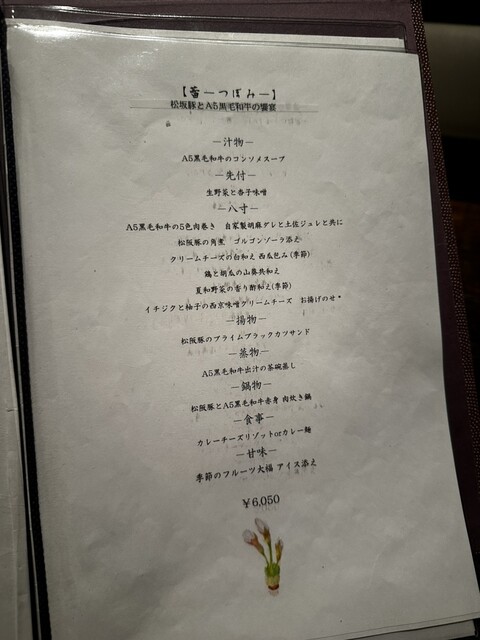 【蕾ーつぼみー】
松坂豚とA5黒毛和牛の饗宴
ー汁物ー
A5黒毛和牛のコンソメスープ
ー先付ー
生野菜と杏子味噌
ー八寸ー
A5黒毛和牛の5色肉巻き　自家製胡麻ダレと土佐ジュレと共に
松阪豚の角煮　ゴルゴンゾーラ添え
クリームチーズの白和え 西瓜包み(季節)
鶏と胡瓜の山葵共和え
夏和野菜の香り酢和え(季節)
イチジクと柚子の西京味噌クリームチーズ　お揚げのせ
ー揚物ー
松阪豚のプライムブラックカツサンド
ー蒸物ー
A5黒毛和牛出汁の茶碗蒸し
ー鍋物ー
松阪豚とA5黒毛和牛赤身 肉炊き鍋
ー食事ー
カレーチーズリゾットorカレー麺
ー甘味ー
季節のフルーツ大福 アイス添え
￥6,050